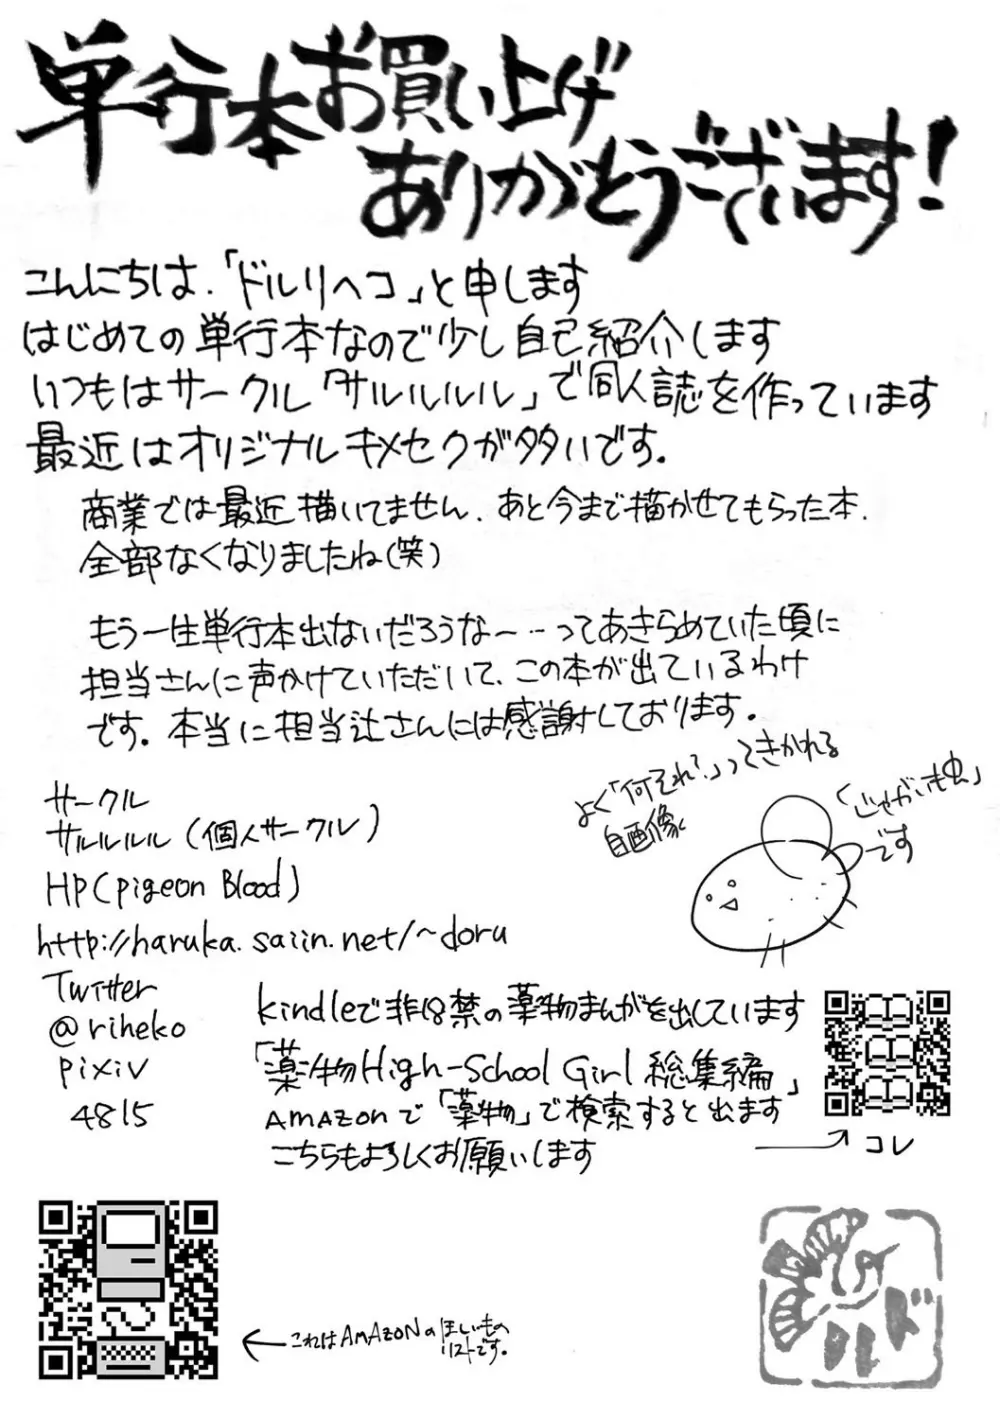 単行本お買い上げ
ありがとうございます!
こんにちは、「ドルリヘコ」と申します
はじめての単行本なので少し自己紹介します
いつもはサークル「サルルルル」で同人誌を作っています
最近はオリジナルキメセクが多いです。
商業では最近描いてません、あと今まで描かせてもらった本、
全部なくなりましたね(笑)
もう一生単行本出ないだろうな~…ってあきらめていた頃に
担当さんに声かけていただいて、この本が出ているわけ
です。本当に担当辻さんには感謝しております。
よく「何それ?」ってきかれる
自画像
「じゃがいも虫」
です
サークル
サルルルル(個人サークル)
HP(pigeon Blood)
http://haruka.saiin.net/~doru
Twitter
@riheko
pixiv
4815
kindleで非18禁の薬物まんがを出しています
「薬物High-School Girl 総集編」
AMAzonで「薬物」で検索すると出ます
こちらもよろしくお願いします
コレ
これはAMAZONのほしいもの
リストです。
ドル